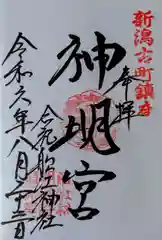 新潟古町鎮守
奉拝
神明宮
合祀 船江神社
令和六年八月十三日